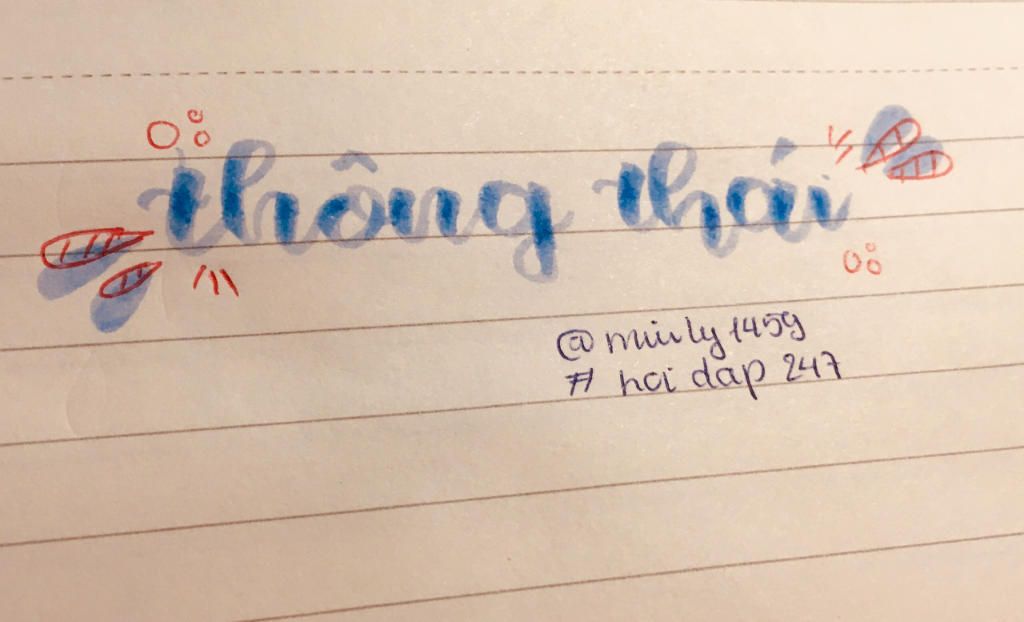 thông thái
@minly1459
# hoi dap 247